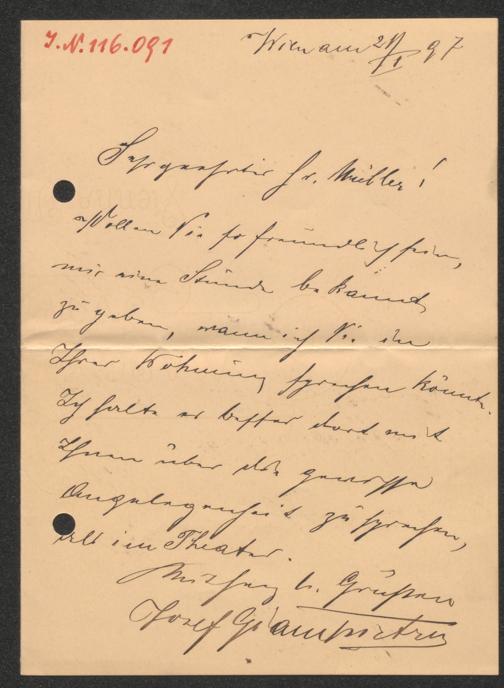 J.N. 116.091
Wien am 21/1 97
Sehr geehrter Hr. Müller!
Wollen Sie so freundlich sein,
mir eine Stunde bekannt
zu geben, wann ich Sie in
Ihrer Wohnung sprechen könnte.
Ich halte es besser dort mit
Ihnen über die gewisse
Angelegenheit zu sprechen,
als im Theater.
Mit herzl. Grüßen
Josef Giampietro